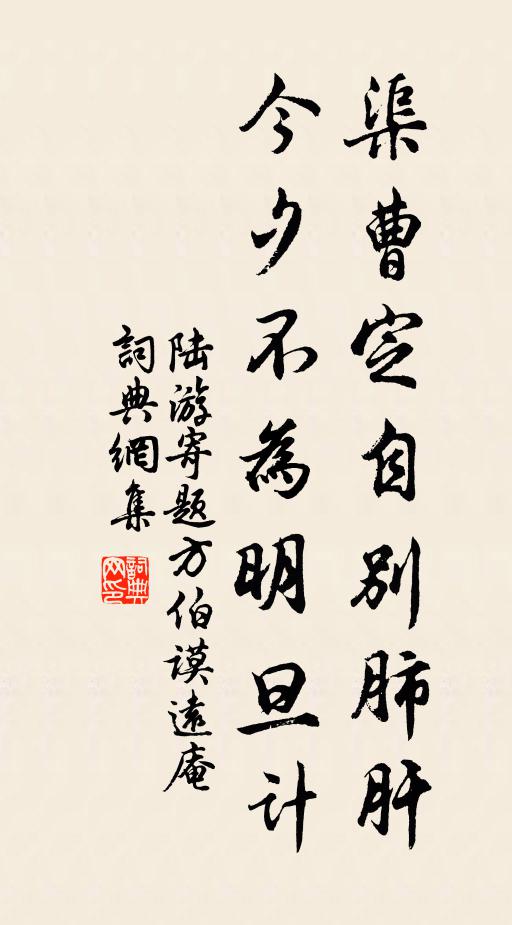 渠曹定自别肺肝
今夕不為明旦计
陆游寄题方伯谟遠庵
詞典網集
詞典网印